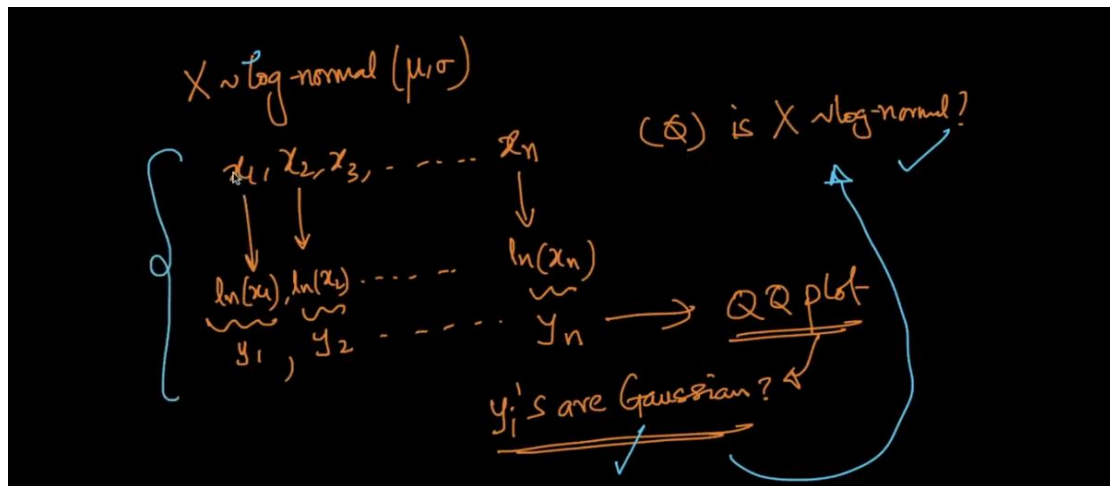 X ~ log-normal (μ,σ)
(Q) is X ~ log-normal?
x₁, x₂, x₃, - ..... xₙ
ln(x₁), ln(x₂) ........ ln(xₙ)
y₁, y₂ - - - - ... yₙ → QQ plot
yᵢ's are Gaussian?